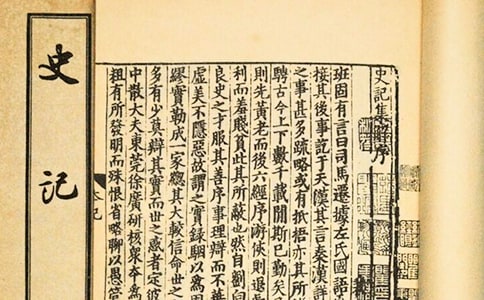 史記集解序
班固有言曰司馬遷據左氏國語
接其後事訖于天漢其言秦漢詳
之事甚多疏略或有抵捂亦其所
騁古今上下數千載間斯已勤矣
則先黃老而後六經序游俠則退處
利而羞賤貧此其所蔽也然自劉向
良史之才服其善序事理辯而不華
虛美不隱惡故謂之實錄駰以爲固
繆實勒成一家總其大較信命世之
多有少真辯其實而世之惑者定彼
中散大夫東莞徐廣研核衆本爲
粗有所發明而殊恨省略聊以愚管
史記